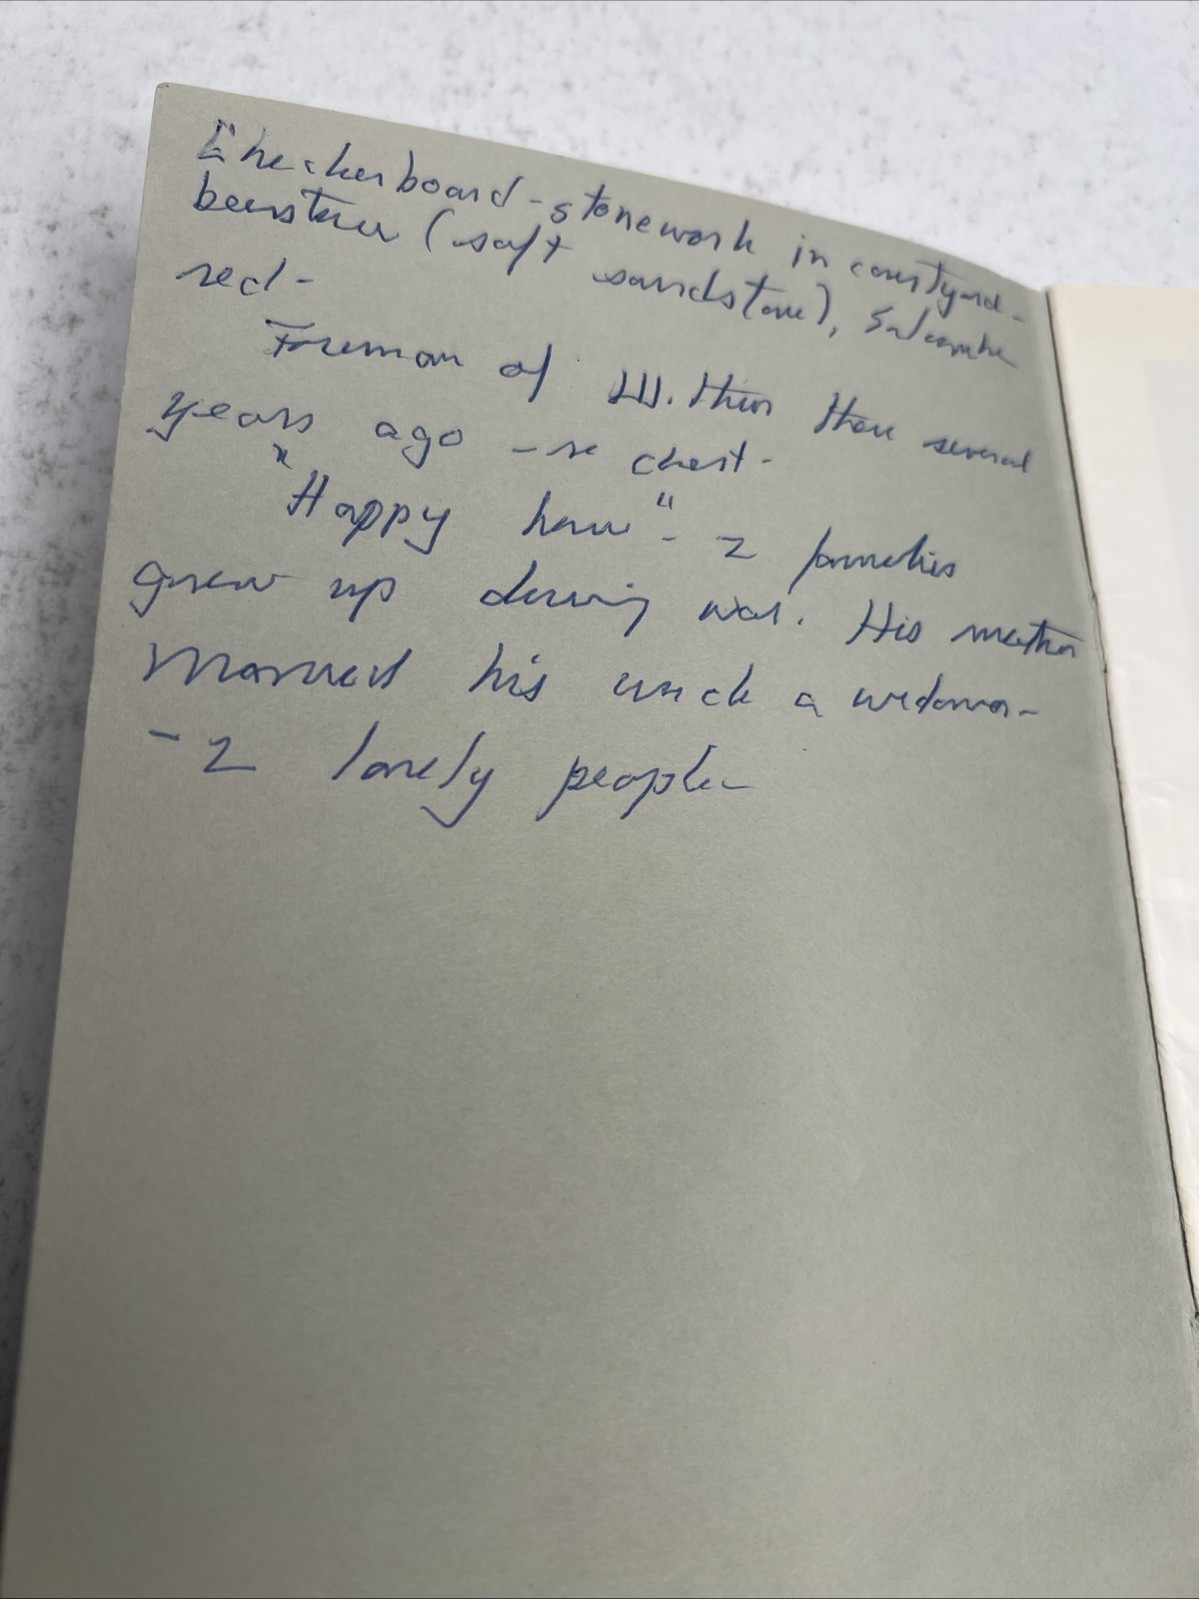 Checkerboard - stonework in courtyard -
beerstone (soft sandstone), Salcombe
red -
Foreman of W. Hun there several
years ago - re chest -
"Happy home" - 2 families
grew up during war. His mother
married his uncle a widower -
- 2 lonely people